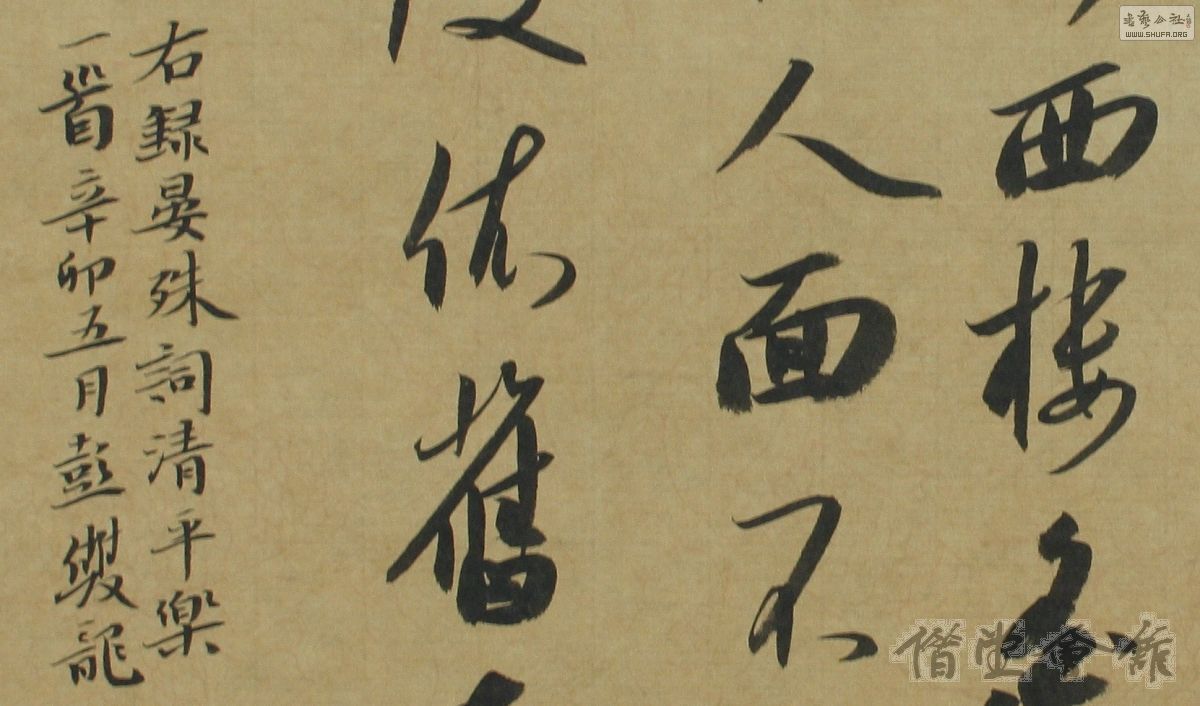 西樓
人面不
依舊
右録晏殊詞清平樂
一首辛卯五月彭雙龍
書艺公社
WWW.SHUFA.ORG